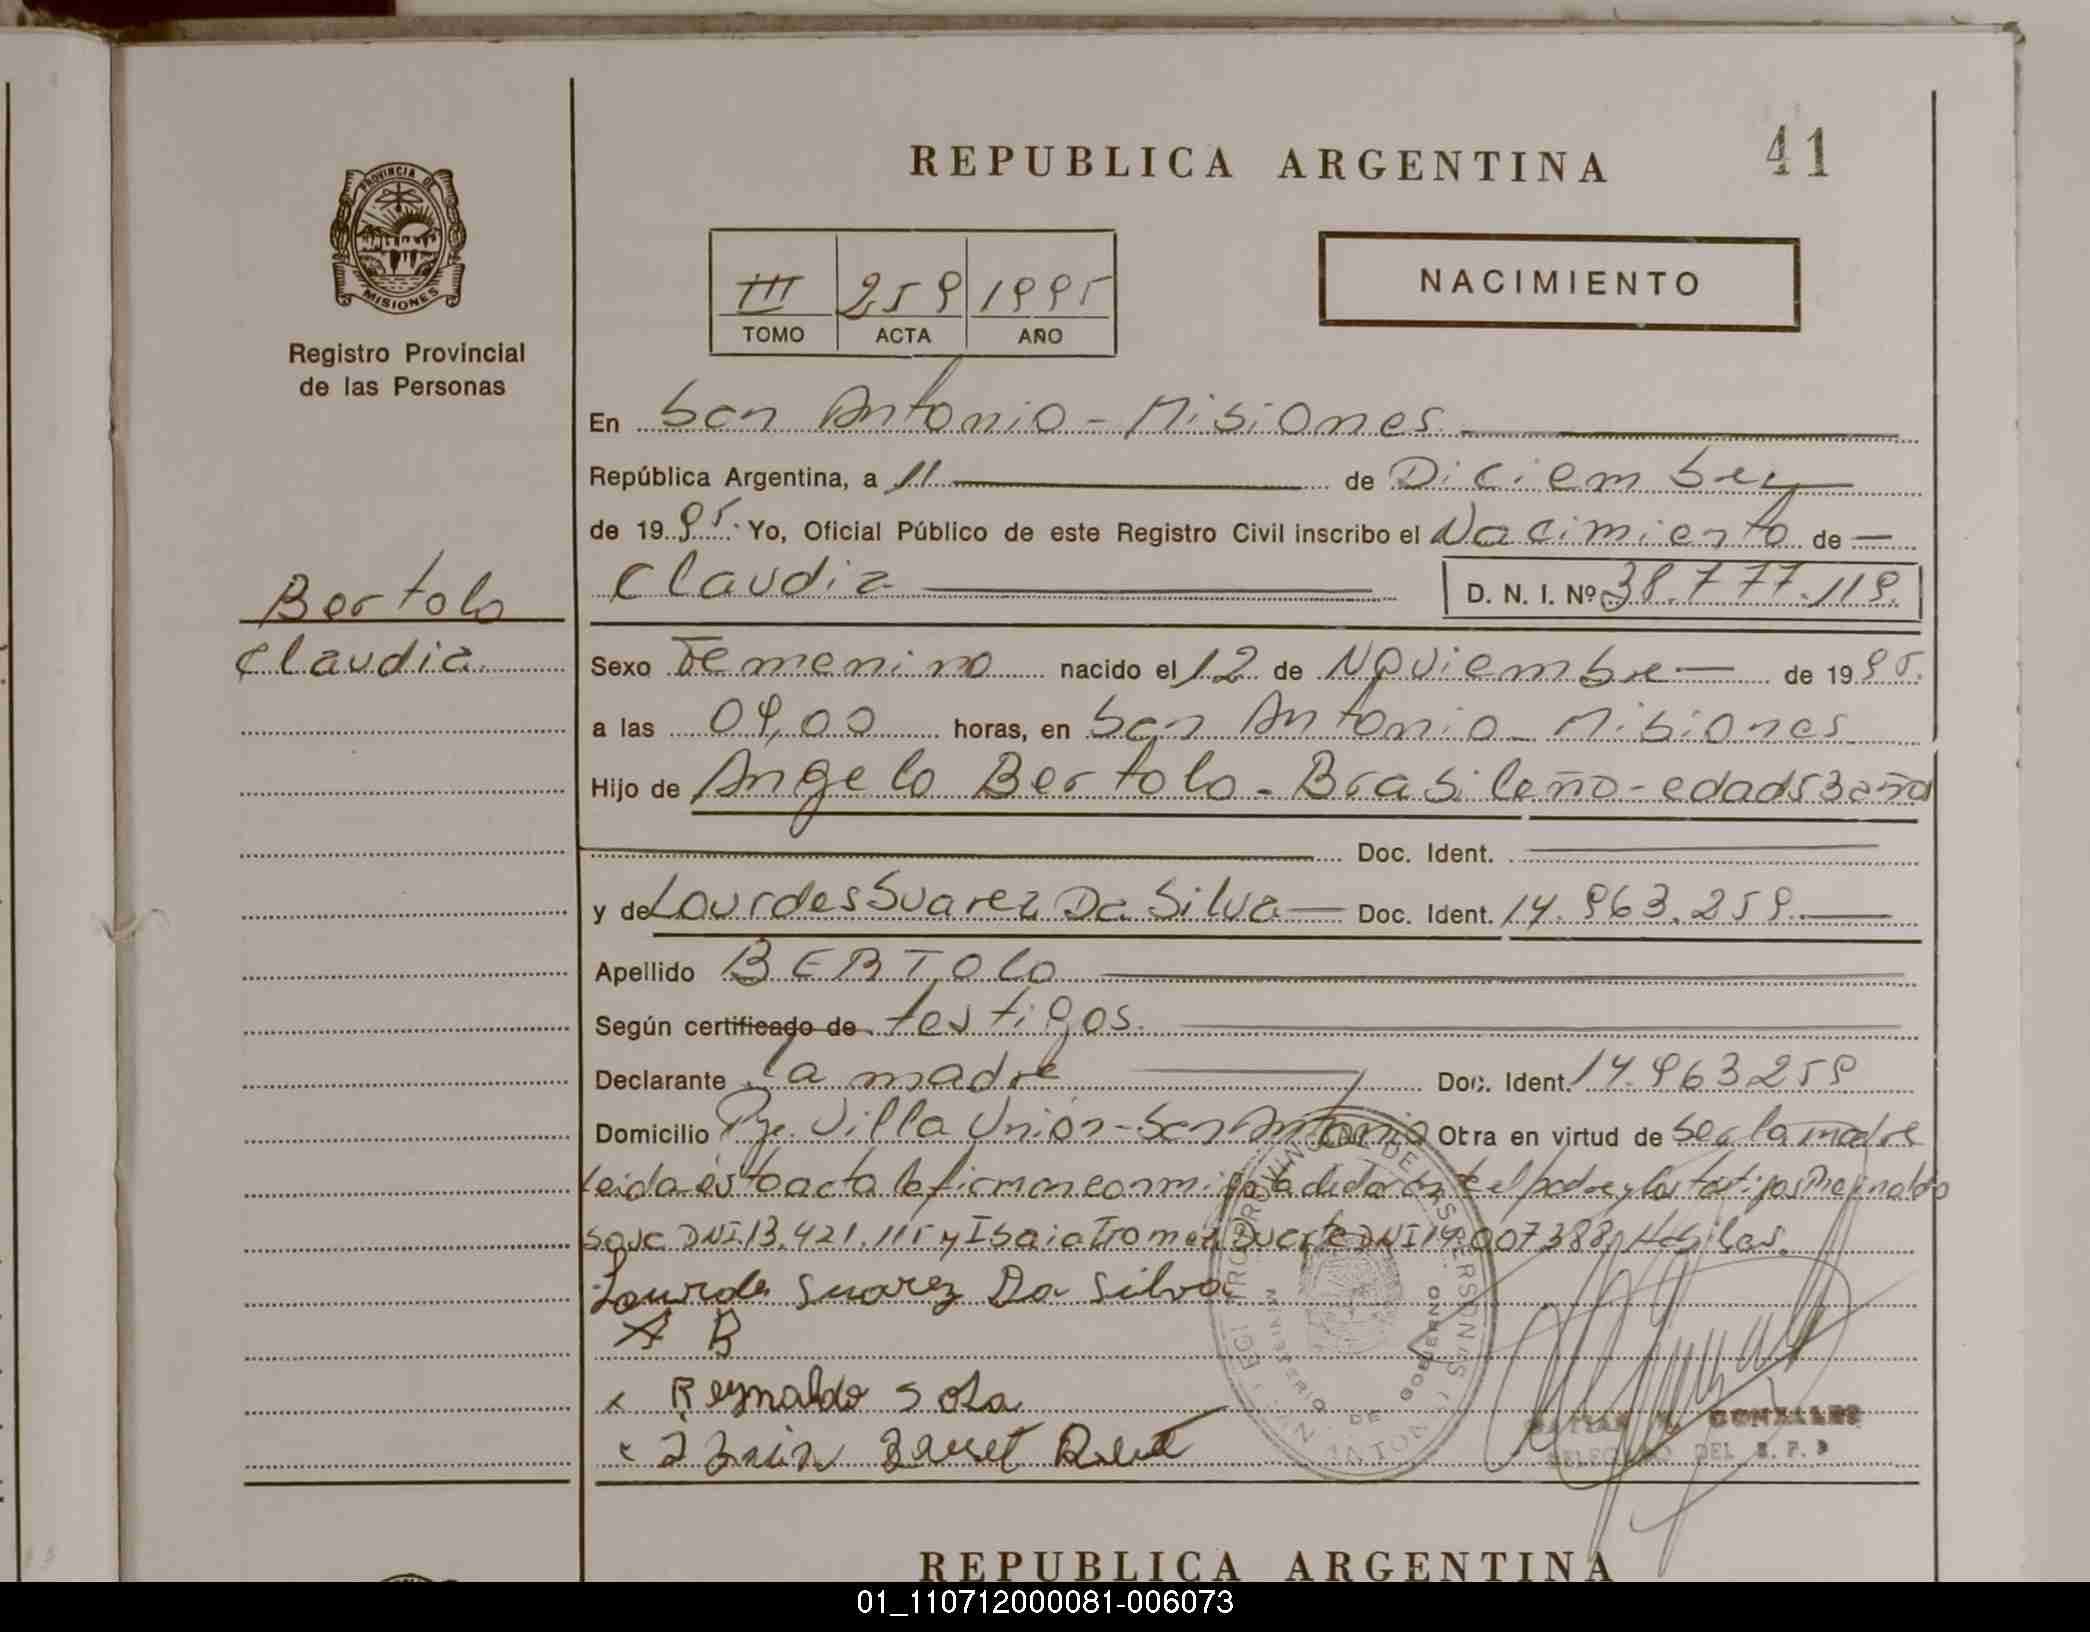 REPUBLICA ARGENTINA
41
PROVINCIA DE
MISIONES
Registro Provincial
de las Personas
III 259 1995
TOMO ACTA AÑO
NACIMIENTO
En San Antonio - Misiones
República Argentina, a 11 de Diciembre
de 1995. Yo, Oficial Público de este Registro Civil inscribo el Nacimiento de
Claudia D. N. I. Nº 38.777.119.
Bertolo
Claudia
Sexo Femenino nacido el 12 de Noviembre de 1995.
a las 09,00 horas, en San Antonio - Misiones
Hijo de Angelo Bertolo - Brasileño - edad 53 años
Doc. Ident.
y de Lourdes Suarez Da Silva Doc. Ident. 14.963.259
Apellido BERTOLO
Según certificado de testigos.
Declarante la madre Doc. Ident. 14.963259
Domicilio Pje. Villa Unión - San Antonio Otra en virtud de ser la madre
leida esta acta la firman conmigo la declarante el padre y los testigos Reynaldo
DNI 13.421.115 y Duarte DNI 14.007388
Lourdes Suarez Da Silva
A B
x Reynaldo Sosa
GONZALES
DELEGADO DEL R. P. P
MINISTERIO DE GOBIERNO
REPUBLICA ARGENTINA
01_110712000081-006073